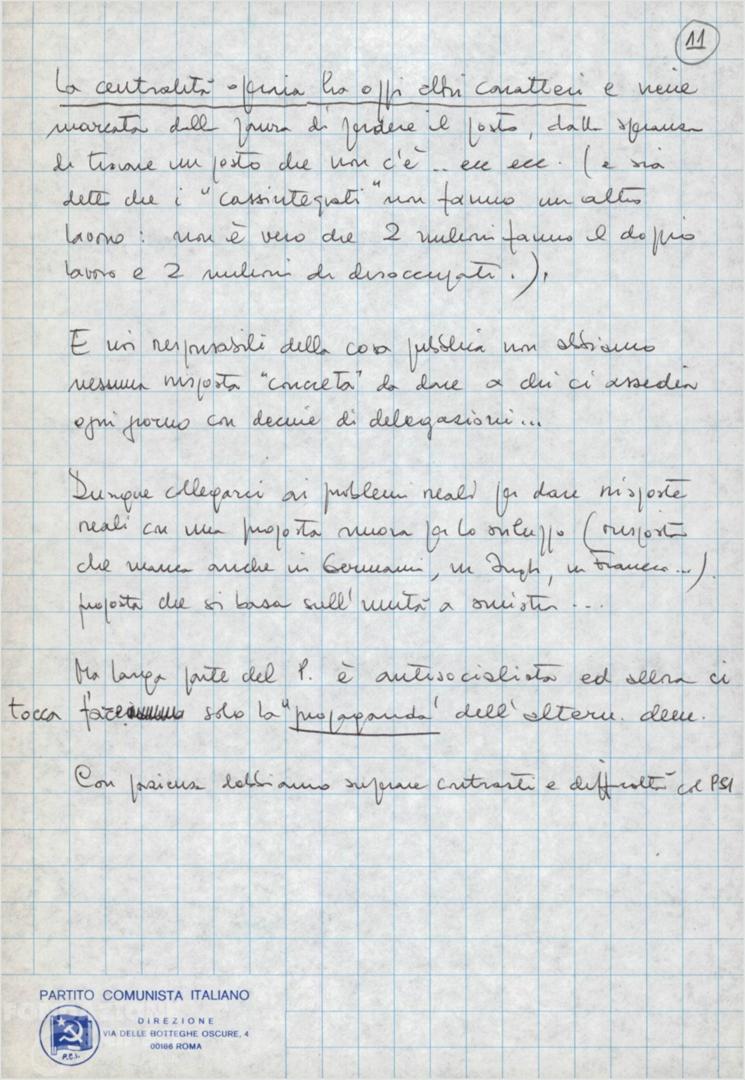 11
La centralità operaia ha oggi altri caratteri e viene
marcata dalla paura di perdere il posto, dalla speranza
di trovare un posto che non c'è .. ecc ecc. (e sia
detto che i "cassintegrati" non fanno un altro
lavoro: non è vero che 2 milioni fanno il doppio
lavoro e 2 milioni di disoccupati.).
E noi responsabili della cosa pubblica non abbiamo
nessuna risposta "concreta" da dare a chi ci assedia
ogni giorno con decine di delegazioni...
Dunque collegarci ai problemi reali per dare risposte
reali con una proposta nuova per lo sviluppo (risposta
che manca anche in Germania, in Ingh, in Francia...).
proposta che si basa sull'unità a sinistra ...
Ma larga parte del P. è antisocialista ed allora ci
tocca fare solo la "propaganda" dell'altern. dem.
Con pazienza dobbiamo superare contrasti e difficoltà col PSI
PARTITO COMUNISTA ITALIANO
DIREZIONE
VIA DELLE BOTTEGHE OSCURE, 4
00186 ROMA
P.C.I.